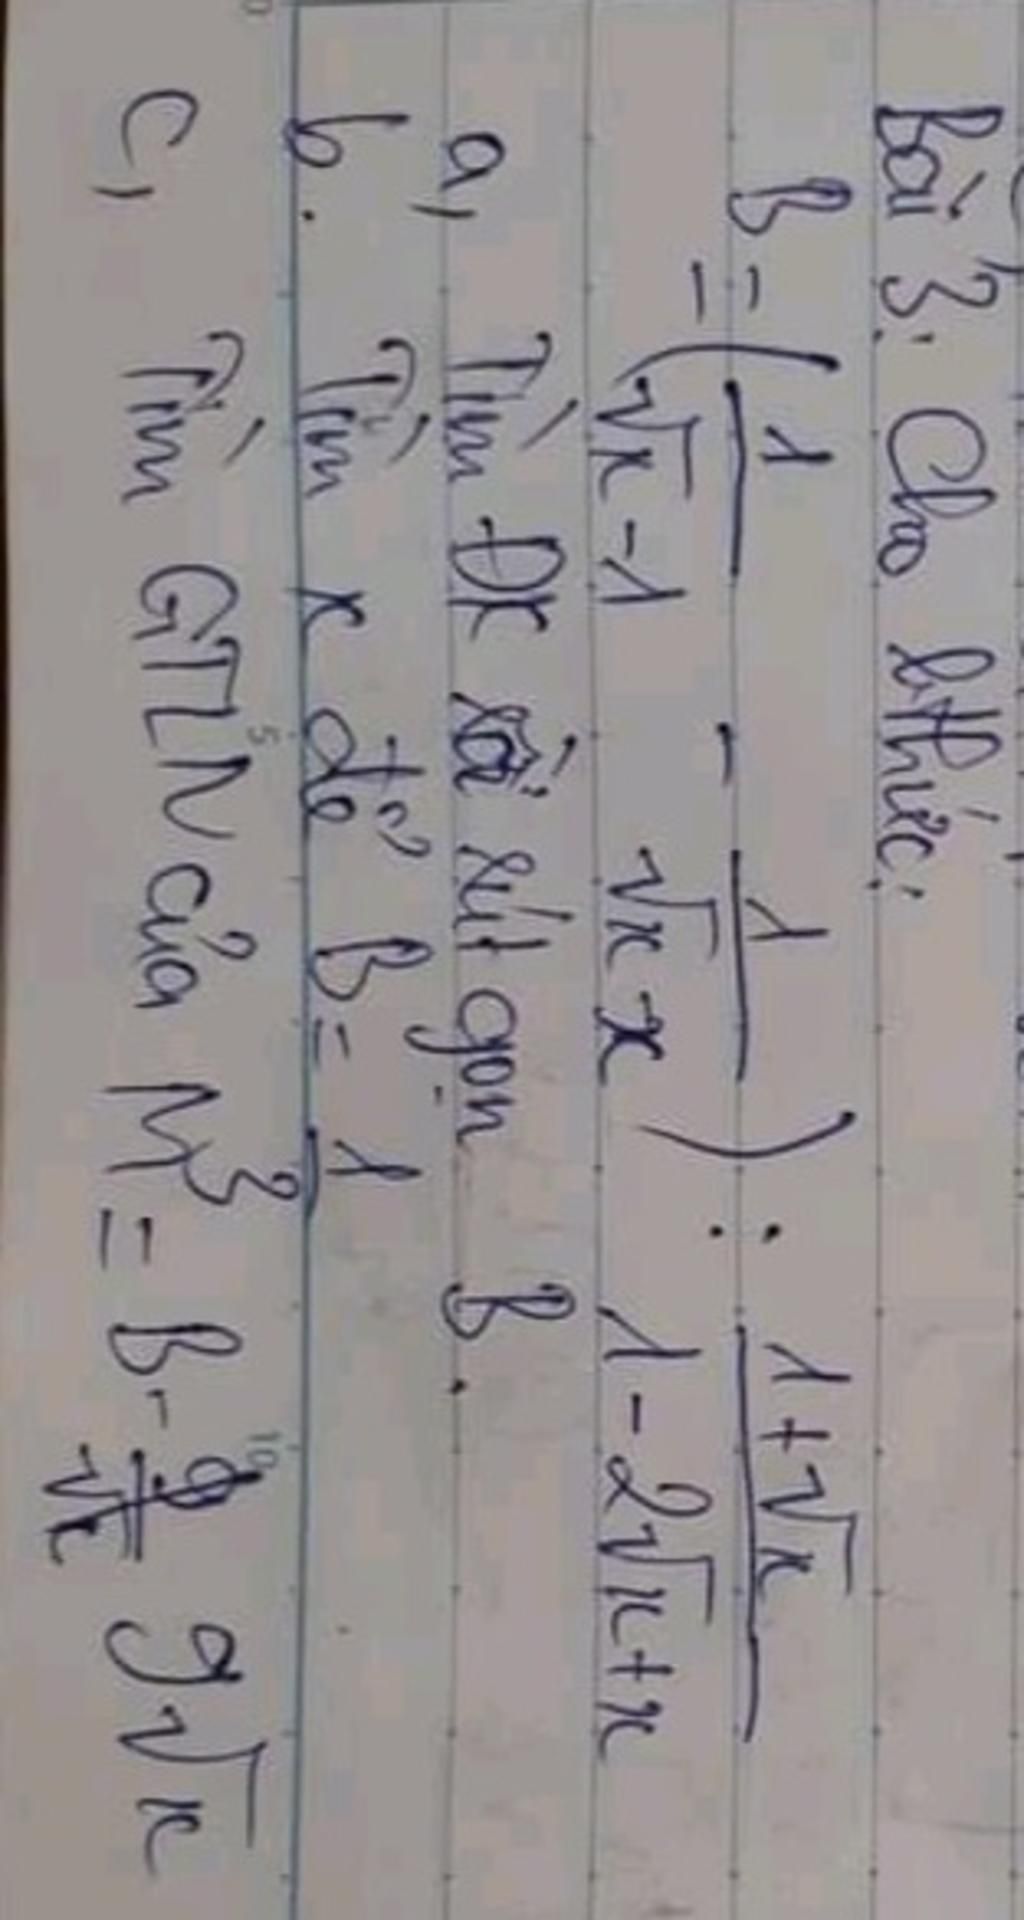 Bài 3: Cho bthức:
B = ( 1/(√x - 1) - 1/(√x - x) ) : (1 + √x)/(1 - 2√x + x)
a, Tìm ĐK rồi rút gọn B.
b. Tìm x để B = 1/3
c, Tìm GTLN của M = B - 9√x